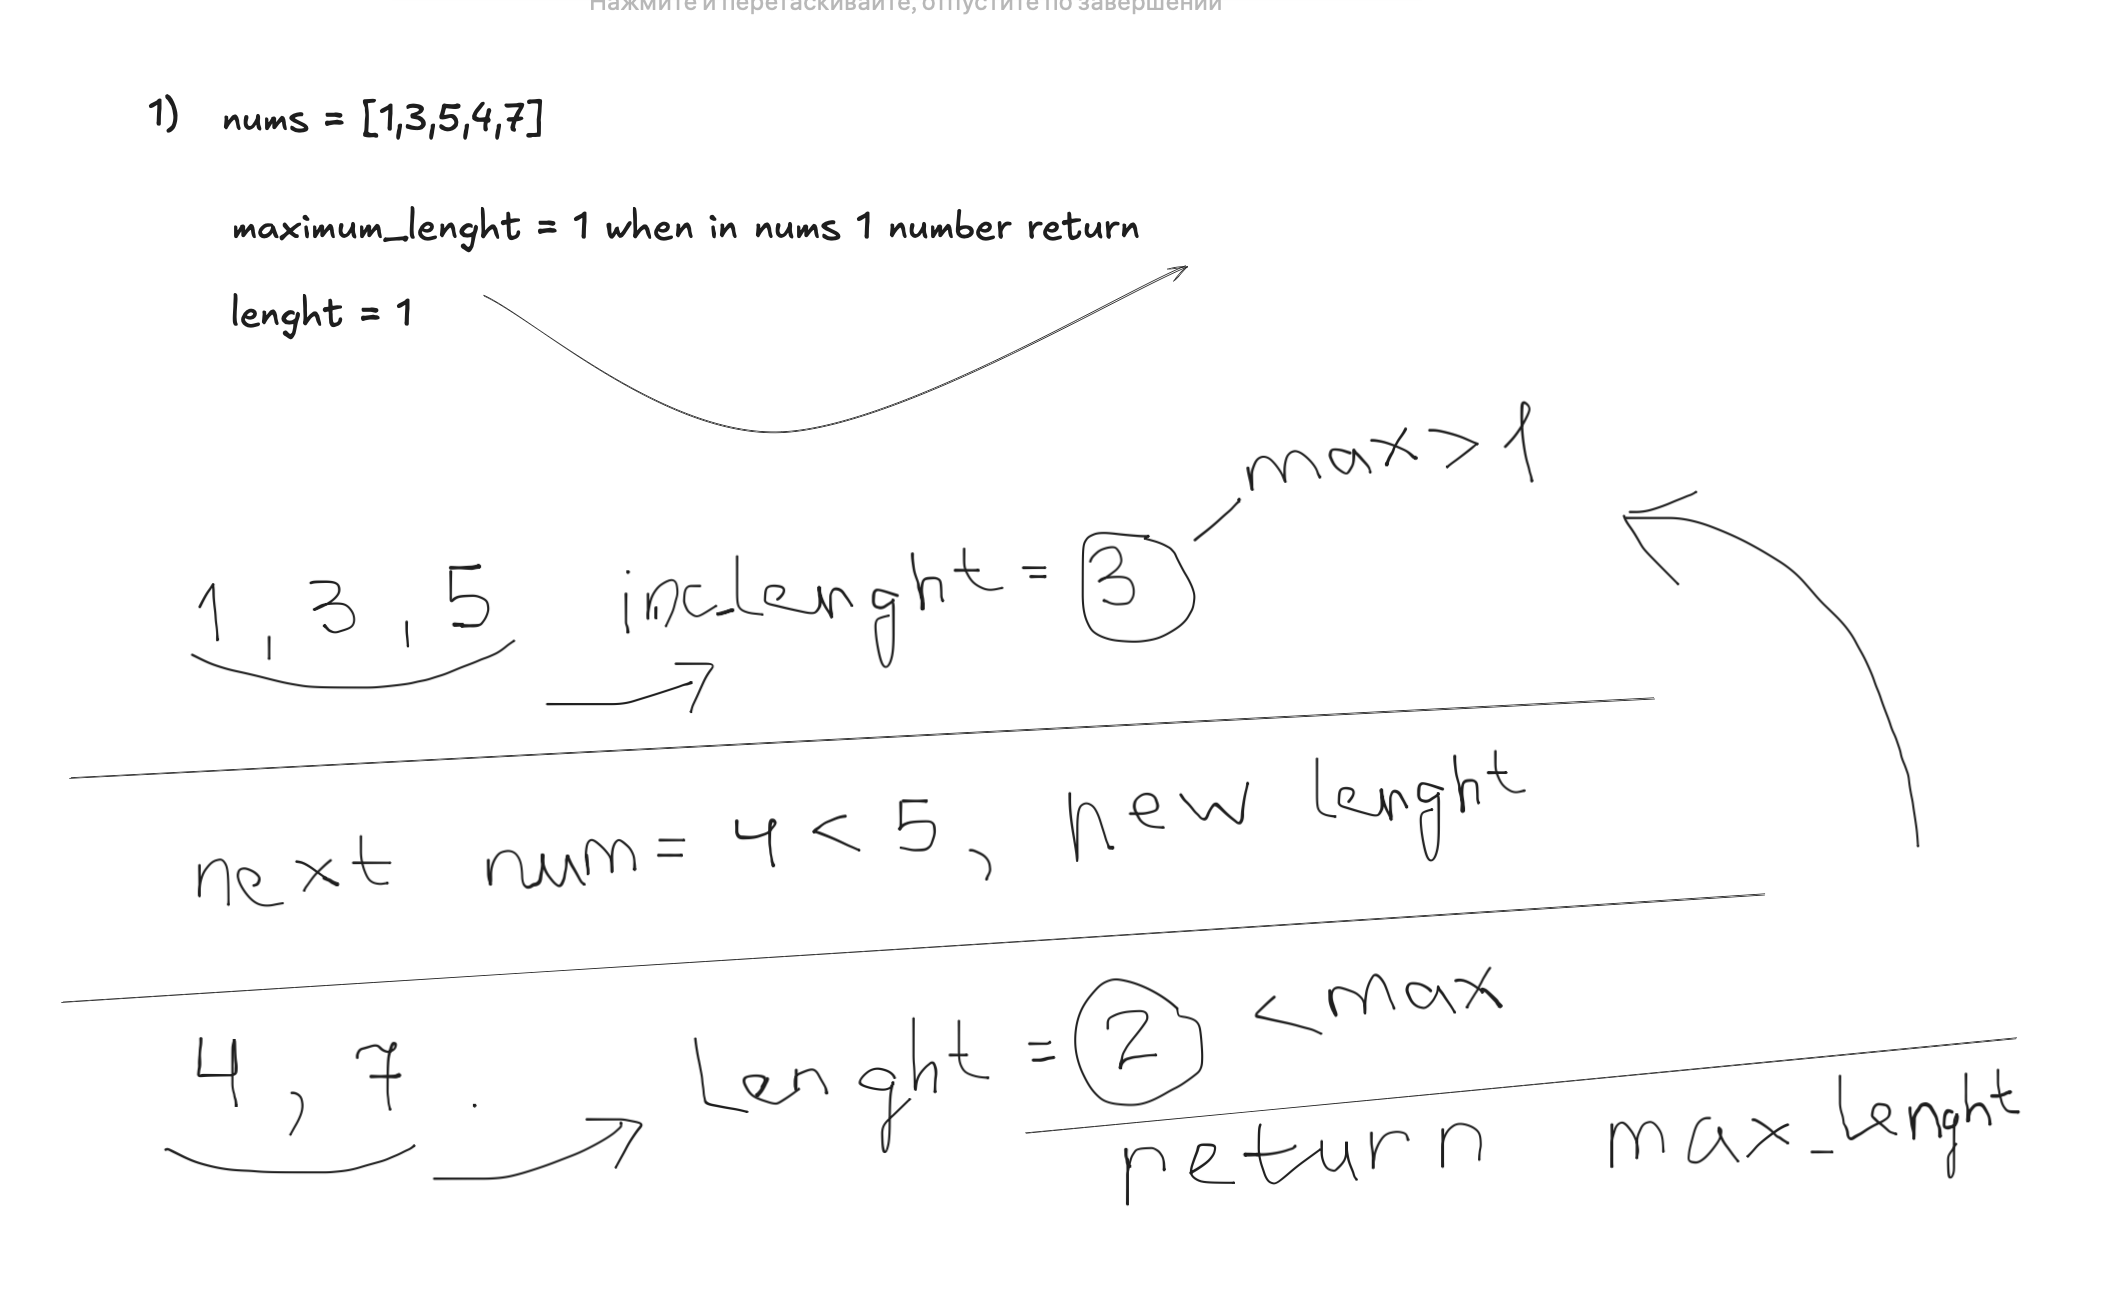 Нажмите и перетаскивайте, отпустите по завершении
1) nums = [1,3,5,4,7]
maximum_lenght = 1 when in nums 1 number return
lenght = 1
max > 1
1, 3, 5 inc_lenght = 3
next num = 4 < 5, new lenght
4, 7. Lenght = 2 < max
return max_lenght